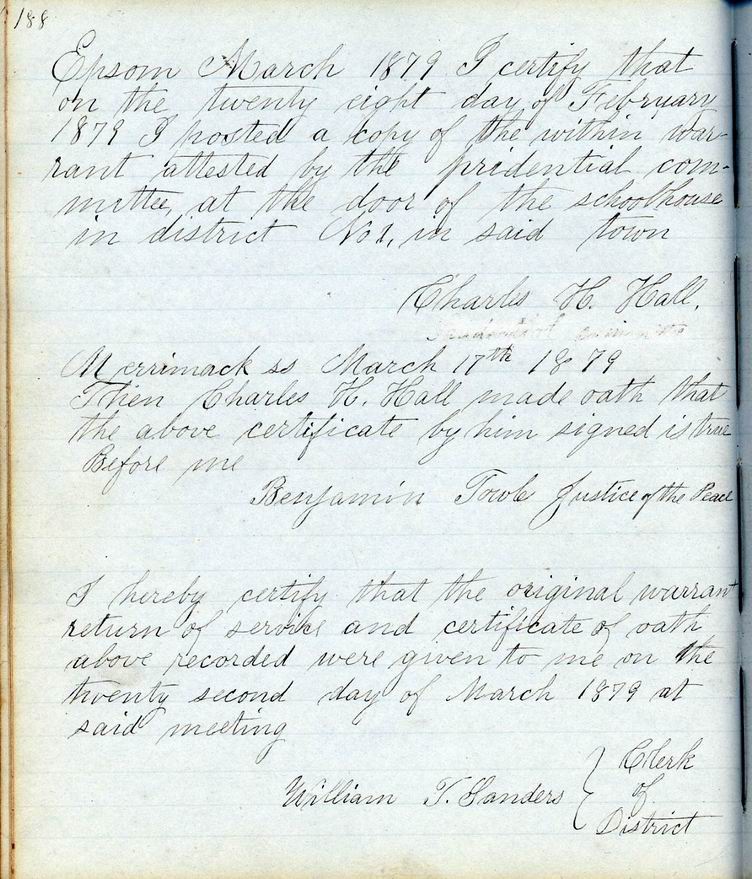 188
Epsom March 1879 I certify that
on the twenty eight day of February
1879 I posted a copy of the within war-
rant attested by the pridential com-
mittee, at the door of the schoolhouse
in district No 1, in said town
Charles H. Hall.
Merrimack ss March 17th 1879
Then Charles H. Hall made oath that
the above certificate by him signed is true
Before me
Benjamin Towle Justice of the Peace
I hereby certify that the original warrant
return of service and certificate of oath
above recorded were given to me on the
twenty second day of March 1879 at
said meeting
William T. Sanders { Clerk
of
District